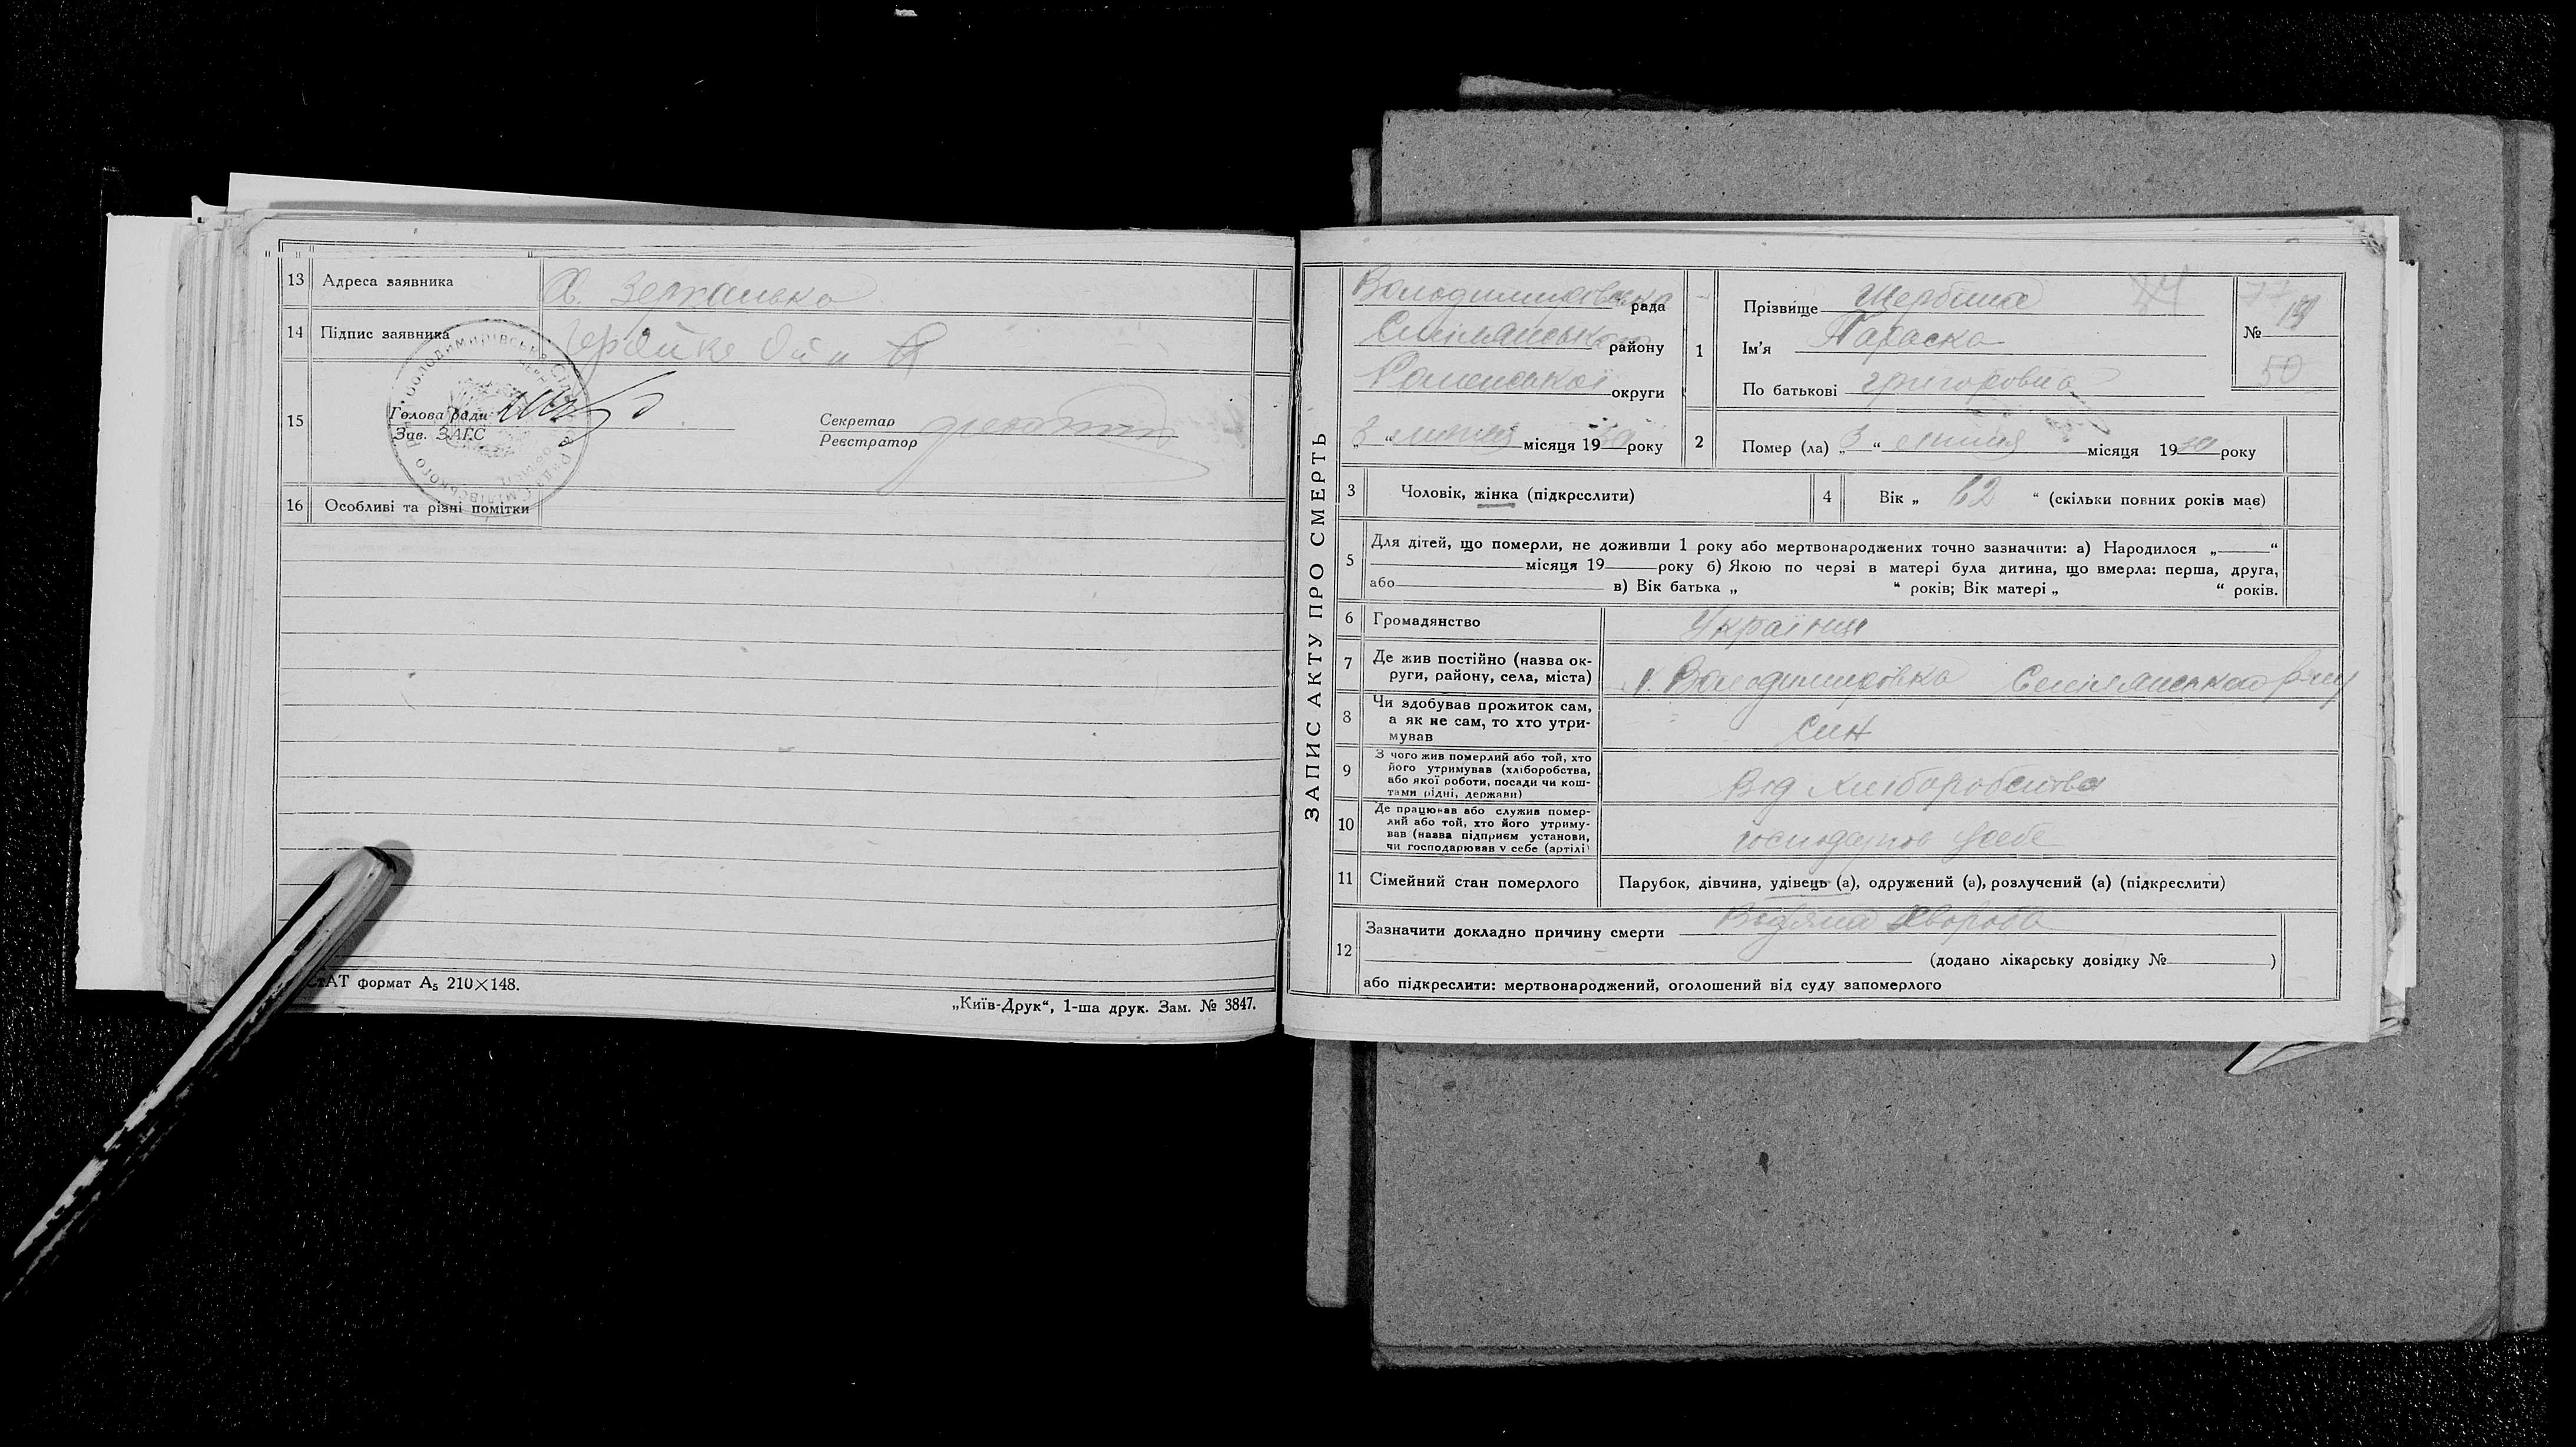 13 Адреса заявника Х. Зерханька
14 Підпис заявника
15 Голова ради
Зав. ЗАГС
Секретар
Реєстратор
16 Особливі та різні помітки
СтАТ формат А₅ 210×148.
„Київ-Друк“, 1-ша друк. Зам. № 3847.
ЗАПИС АКТУ ПРО СМЕРТЬ
Володимирівська рада
Смілянського району
Роменської округи
„3“ липня місяця 1930 року
1 Прізвище Щербина
Ім'я Параска
По батькові Григоровна
№ 13
50
2 Помер (ла) „3“ липня місяця 1930 року
3 Чоловік, жінка (підкреслити)
4 Вік „ 62 “ (скільки повних років має)
5 Для дітей, що померли, не доживши 1 року або мертвонароджених точно зазначити: а) Народилося „ “
місяця 19 року б) Якою по черзі в матері була дитина, що вмерла: перша, друга,
або в) Вік батька „ “ років; Вік матері „ “ років.
6 Громадянство Україниця
7 Де жив постійно (назва ок-
руги, району, села, міста) Володимирівка Смілянського р-ну
8 Чи здобував прожиток сам,
а як не сам, то хто утри-
мував син
9 З чого жив померлий або той, хто
його утримував (хліборобства,
або якої роботи, посади чи кош-
тами рідні, держави) Від хліборобства
10 Де працював або служив помер-
лий або той, хто його утриму-
вав (назва підприєм установи,
чи господарював у себе (артілі) господарюв у себе
11 Сімейний стан померлого Парубок, дівчина, удівець (а), одружений (а), розлучений (а) (підкреслити)
12 Зазначити докладно причину смерти Водяна хвороба
(додано лікарську довідку № )
або підкреслити: мертвонароджений, оголошений від суду запомерлого